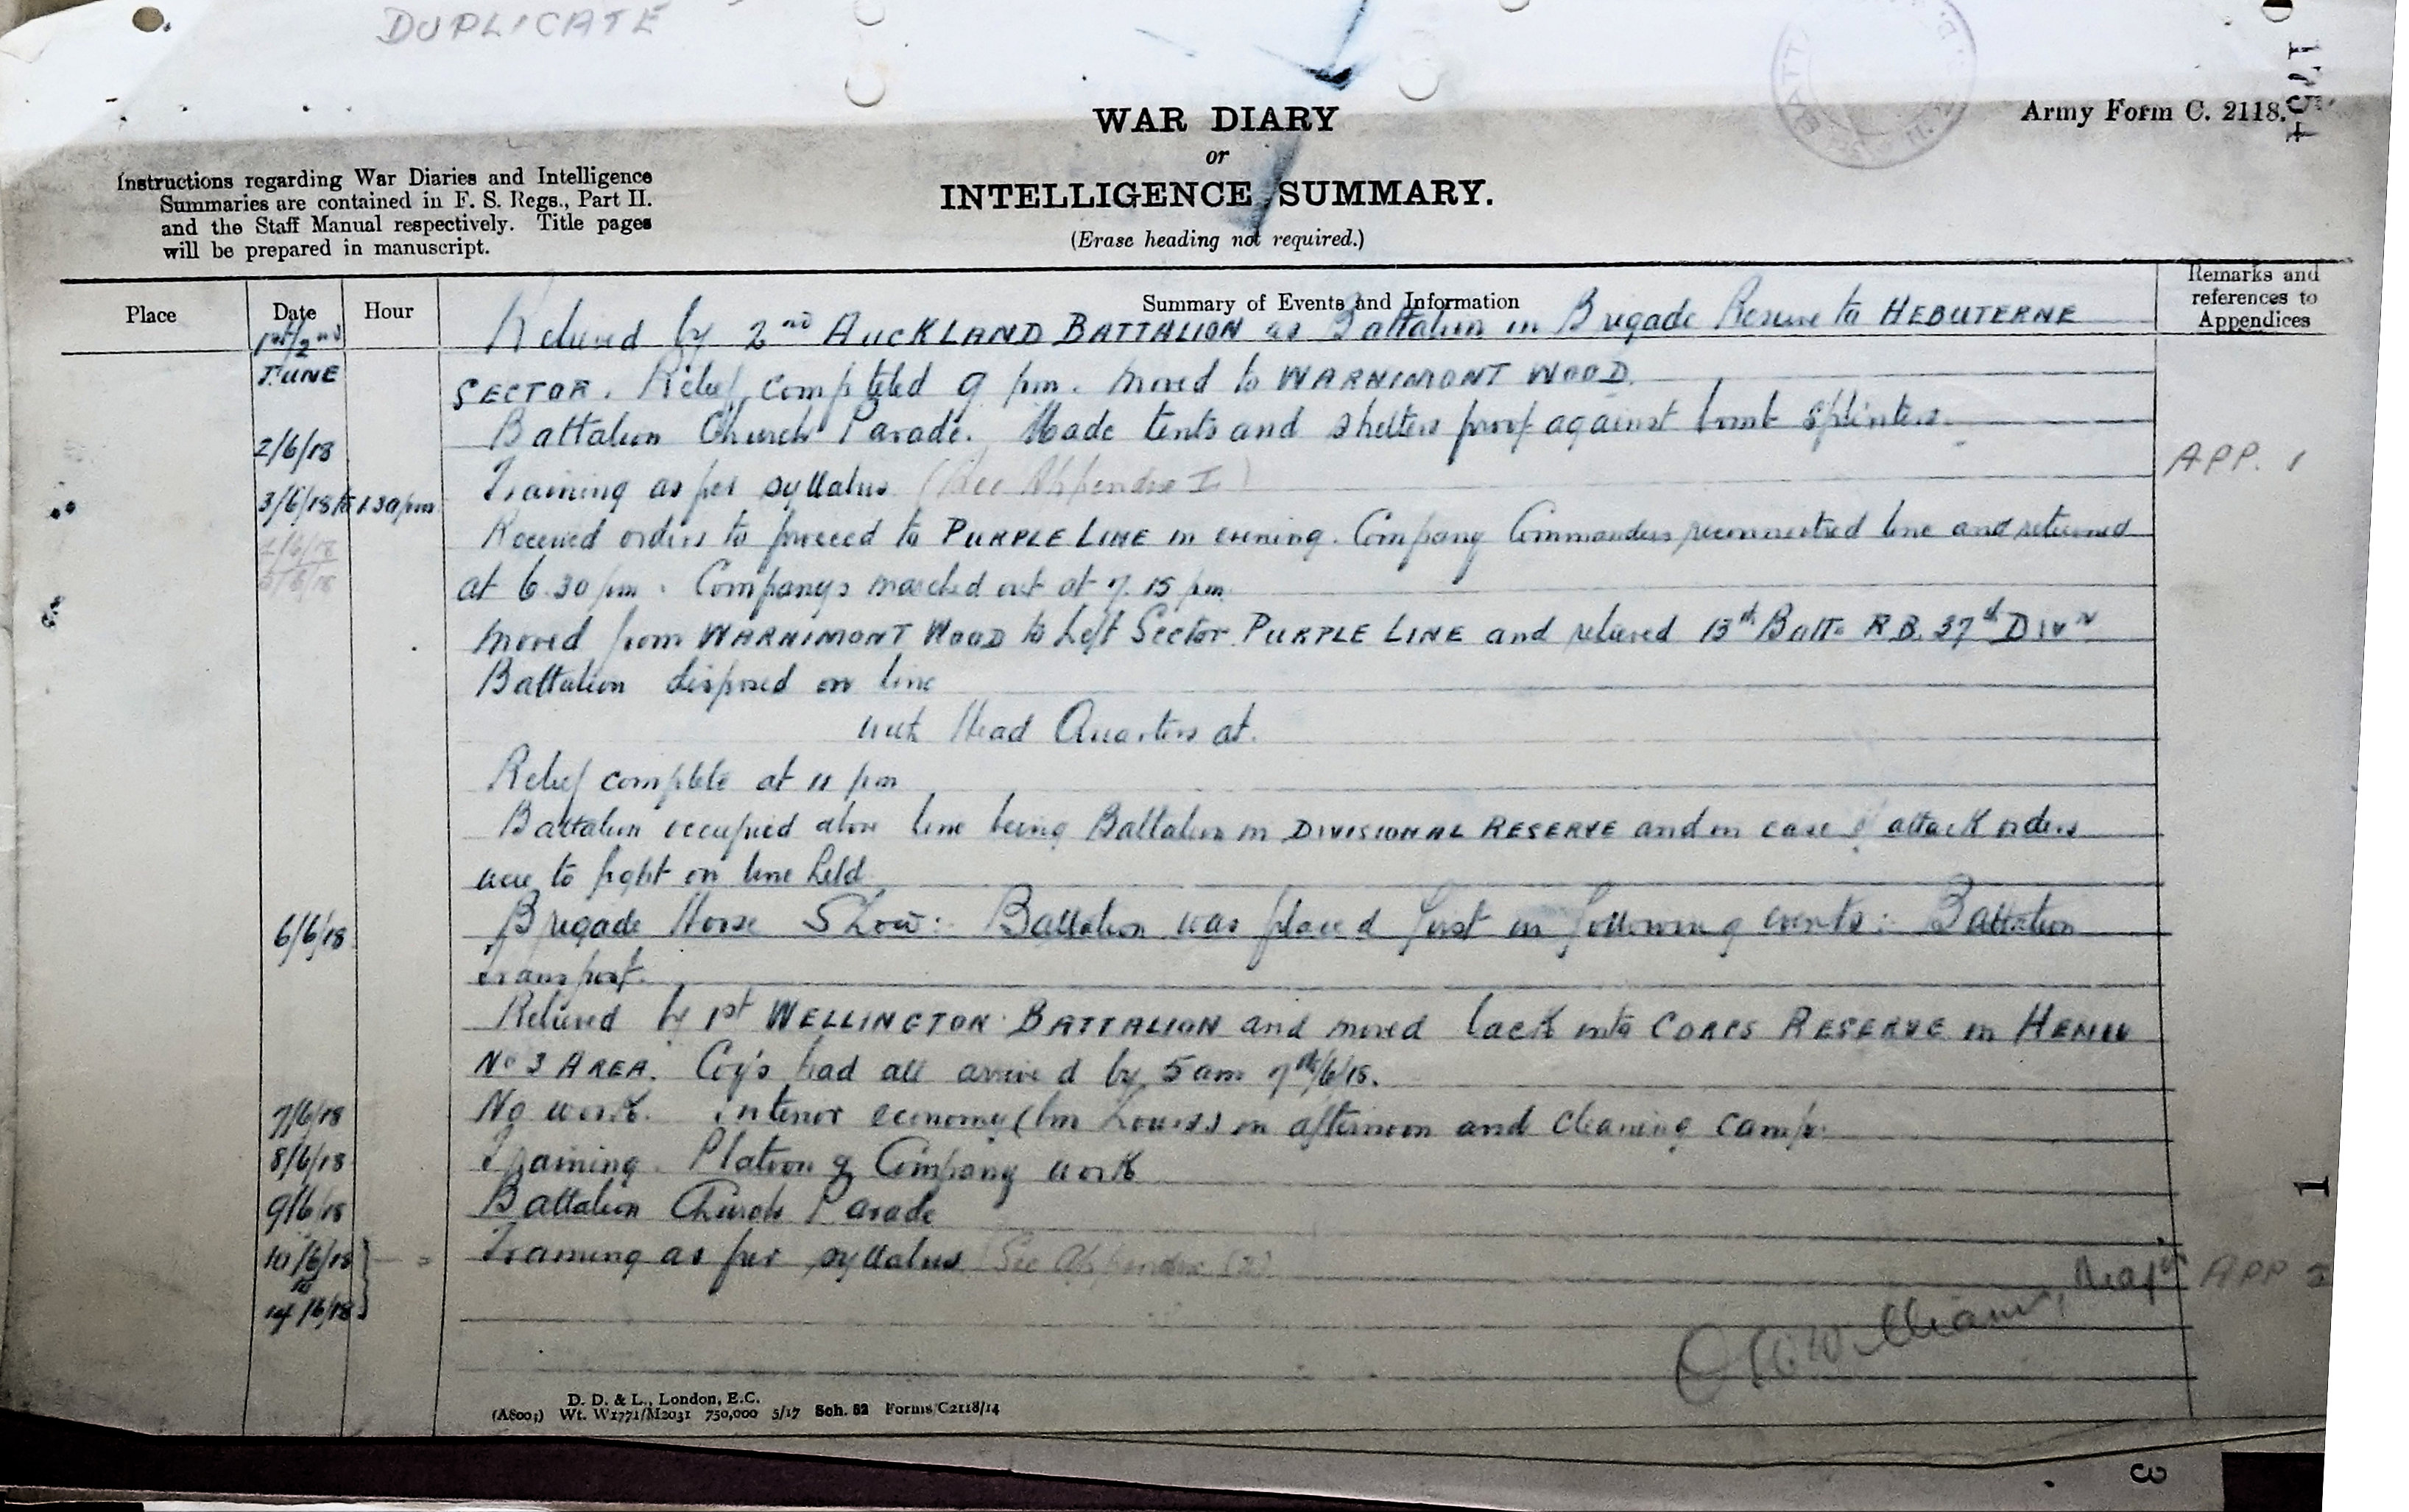 DUPLICATE
WAR DIARY
or
INTELLIGENCE SUMMARY.
(Erase heading not required.)
Army Form C. 2118.
Instructions regarding War Diaries and Intelligence
Summaries are contained in F. S. Regs., Part II.
and the Staff Manual respectively. Title pages
will be prepared in manuscript.
Place Date Hour Summary of Events and Information Remarks and references to Appendices
1st/2nd Relieved by 2nd AUCKLAND BATTALION as Battalion in Brigade Reserve to HEBUTERNE
JUNE SECTOR. Relief completed 9 pm. Moved to WARNIMONT WOOD.
2/6/18 Battalion Church Parade. Made tents and shelters proof against bomb splinters.
3/6/18 to 1.30 pm Training as per syllabus (See Appendix I) APP. 1
Received orders to proceed to PURPLE LINE in evening. Company Commanders reconnoitred line and returned
5/6/18 at 6.30 pm. Companys marched out at 7.15 pm.
Moved from WARNIMONT WOOD to Left Sector PURPLE LINE and relieved 13th Battn R.B. 37th DIVN
Battalion disposed on line
with Head Quarters at.
Relief complete at 11 pm
Battalion occupied above line being Battalion in DIVISIONAL RESERVE and in case of attack orders
were to fight on line held.
6/6/18 Brigade Horse Show:- Battalion was placed first in following events:- Battalion
transport.
Relieved by 1st WELLINGTON BATTALION and moved back into CORPS RESERVE in HENU
No 3 AREA. Coy's had all arrived by 5 am 7th/6/18.
7/6/18 No work. interior economy in afternoon and cleaning camp.
8/6/18 Training. Platoon & Company work
9/6/18 Battalion Church Parade
10/6/18 Training as per syllabus (See Appendix (2) APP 2
to
14/6/18
Williams, Major
D. D. & L., London, E.C.
(A8003) Wt. W1771/M2031 750,000 5/17 Sch. 52 Forms/C2118/14
1
3